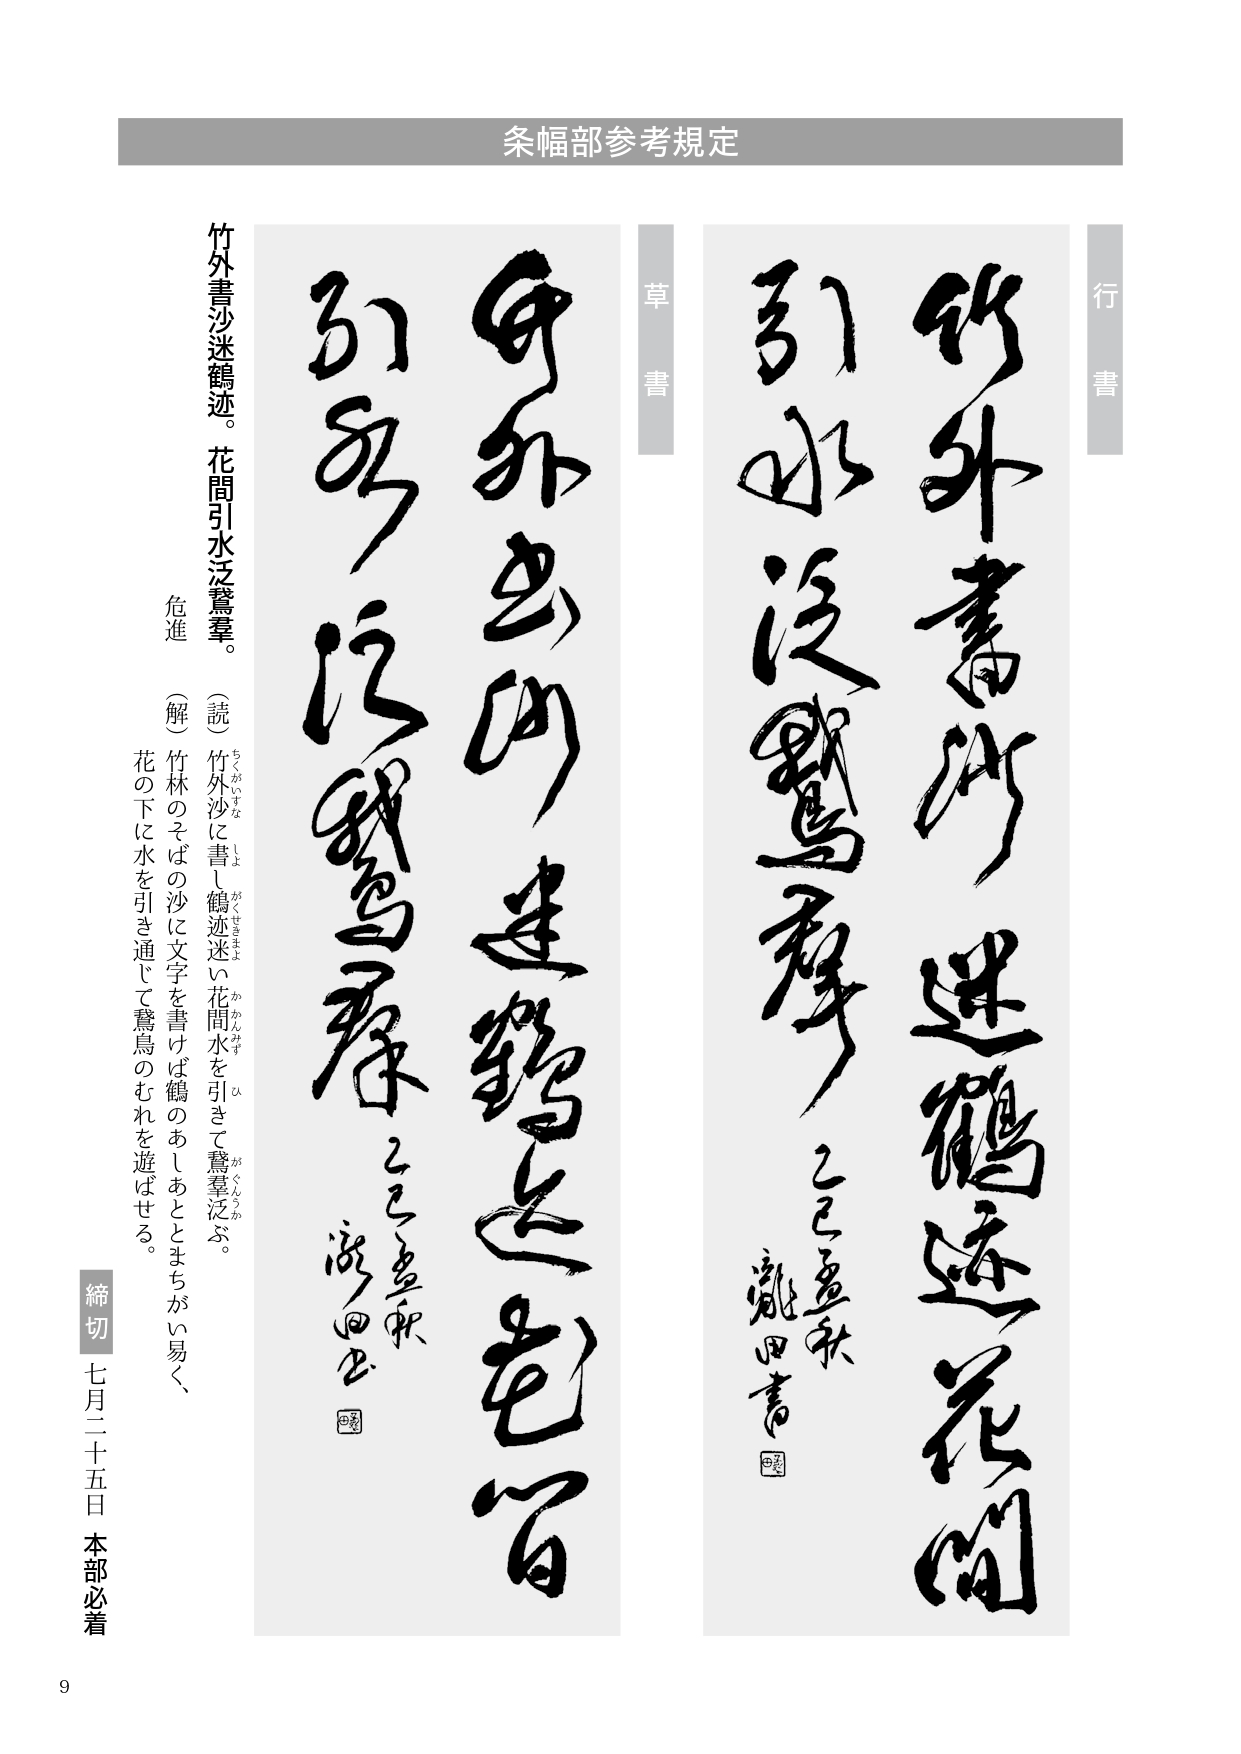 条幅部参考規定
行書
竹外書沙迷鶴迹花間
引水泛鵞羣
乙巳孟秋
瀧田書
草書
竹外書沙迷鶴迹花間
引水泛鵞羣
乙巳孟秋
瀧田書
竹外書沙迷鶴迹。花間引水泛鵞羣。
危進
（読）竹外沙に書し鶴迹迷い花間水を引きて鵞羣泛ぶ。
ちくがいすな しよ がくせきまよ かかんみず ひ がぐんうか
（解）竹林のそばの沙に文字を書けば鶴のあしあととまちがい易く、
花の下に水を引き通じて鵞鳥のむれを遊ばせる。
締切 七月二十五日 本部必着
9